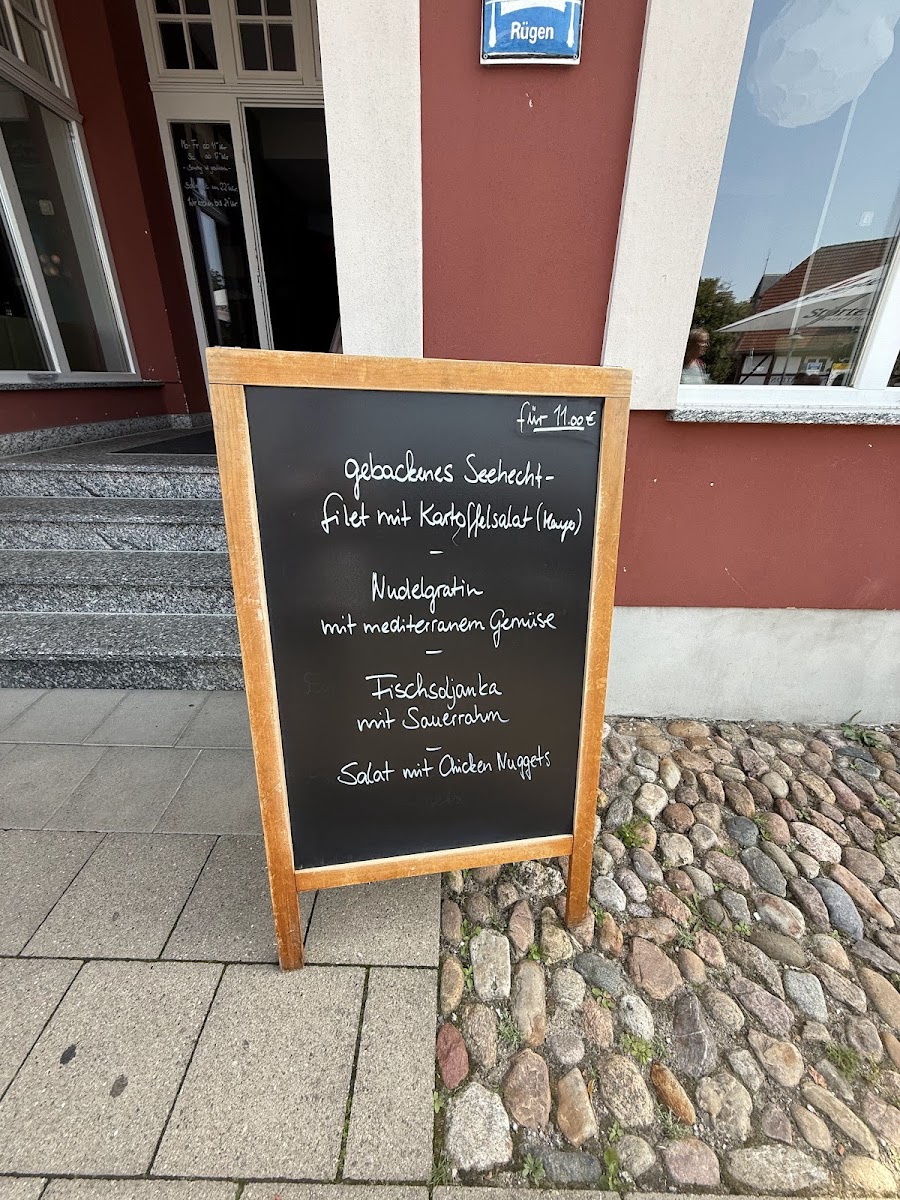 Rügen
für 11.00 €
gebackenes Seehecht-
filet mit Kartoffelsalat (Mayo)
–
Nudelgratin
mit mediterranem Gemüse
–
Fischsoljanka
mit Sauerrahm
–
Salat mit Chicken Nuggets
Mo-Fr ab 11 Uhr
ab 17 Uhr